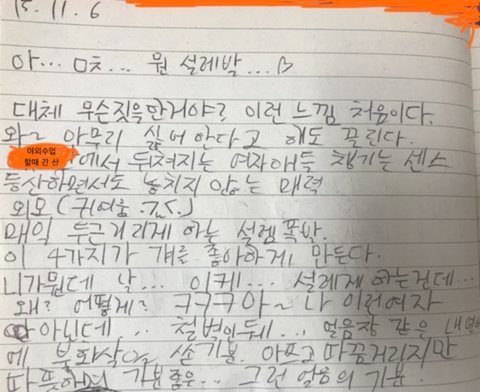 15. 11. 6
아... 미츠... 뭔 설레발...♡
대체 무슨짓을 한거야? 이런 느낌 처음이다.
와~ 아무리 싫어한다고 해도 끌린다.
야외수업 할때 간 산
에서 뒤쳐지는 여자애들 챙기는 센스
등산하면서도 놓치지 않는 매력
외모(귀여움.ㄱㅈ.)
매일 두근거리게 하는 설렘폭발.
이 4가지가 걔를 좋아하게 만든다.
니가뭔데 날... 이케... 설레게 하는건데...
왜? 어떻게? ㅋㅋㅋ아~ 나 이런여자
아닌데... 철벽의 두네... 얼음장 같은 내
에 불화살 쏜기분. 아프고 따끔거리지만
따뜻하며 기분좋은... 그런 얼음의 기분